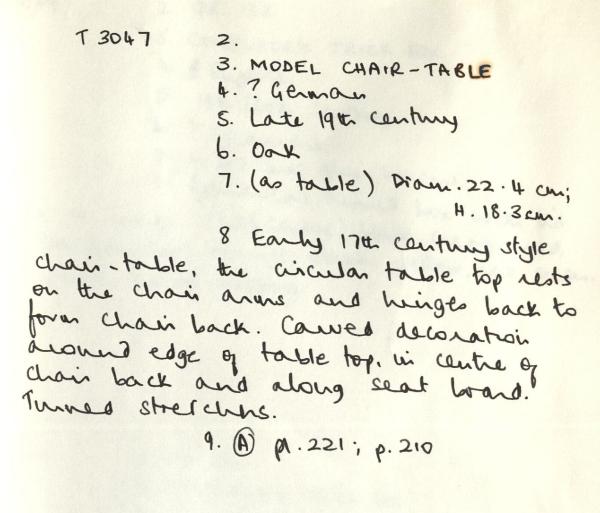 T 3047 2.
3. MODEL CHAIR-TABLE
4. ? German
5. Late 19th century
6. Oak
7. (as table) Diam. 22.4 cm;
H. 18.3cm.
8 Early 17th century style
chair-table, the circular table top rests
on the chair arms and hinges back to
form chair back. Carved decoration
around edge of table top, in centre of
chair back and along seat board.
Turned stretchers.
9. (A) pl. 221; p. 210